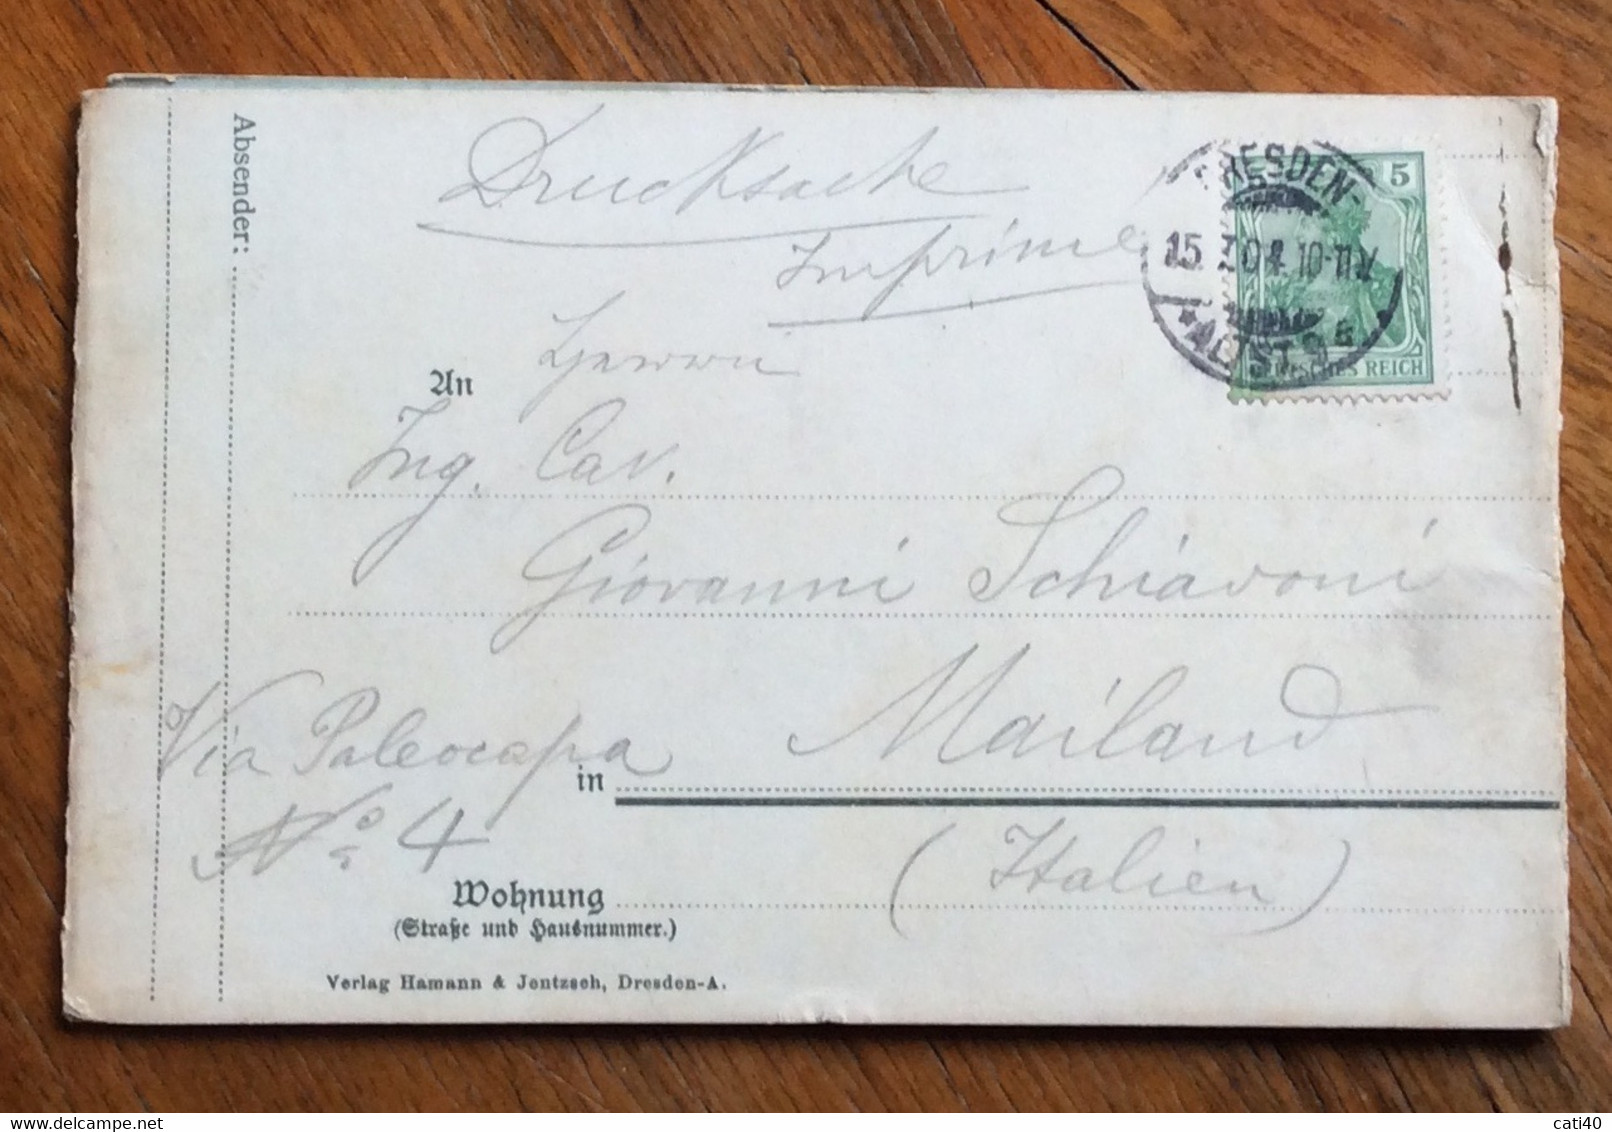 Absender:
Drucksache
Imprimé
DRESDEN-
15. 7.04. 10-11V.
* ALTST. 9 *
5
DEUTSCHES REICH
An Herrn
Ing. Cav.
Giovanni Schiavoni
in Mailand
Via Paleocapa
No. 4
(Italien)
Wohnung
(Straße und Hausnummer.)
Verlag Hamann & Jentzsch, Dresden-A.
cati40